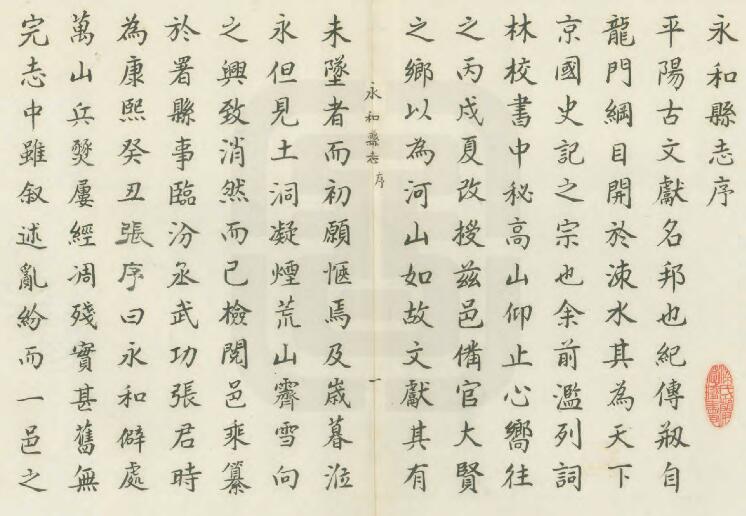 永和縣志序
平陽古文獻名邦也紀傳剏自
龍門綱目開於涑水其為天下
京國史記之宗也余前濫列詞
林校書中秘高山仰止心嚮往
之丙戌夏改授茲邑僃官大賢
之鄉以為河山如故文獻其有
永和縣志 序
一
未墜者而初願愜焉及嵗暮涖
永但見土洞凝煙荒山霽雪向
之興致消然而已檢閱邑乘纂
於署縣事臨汾丞武功張君時
為康熙癸丑張序曰永和僻處
萬山兵燹屢經凋殘實甚舊無
完志中雖叙述亂紛而一邑之